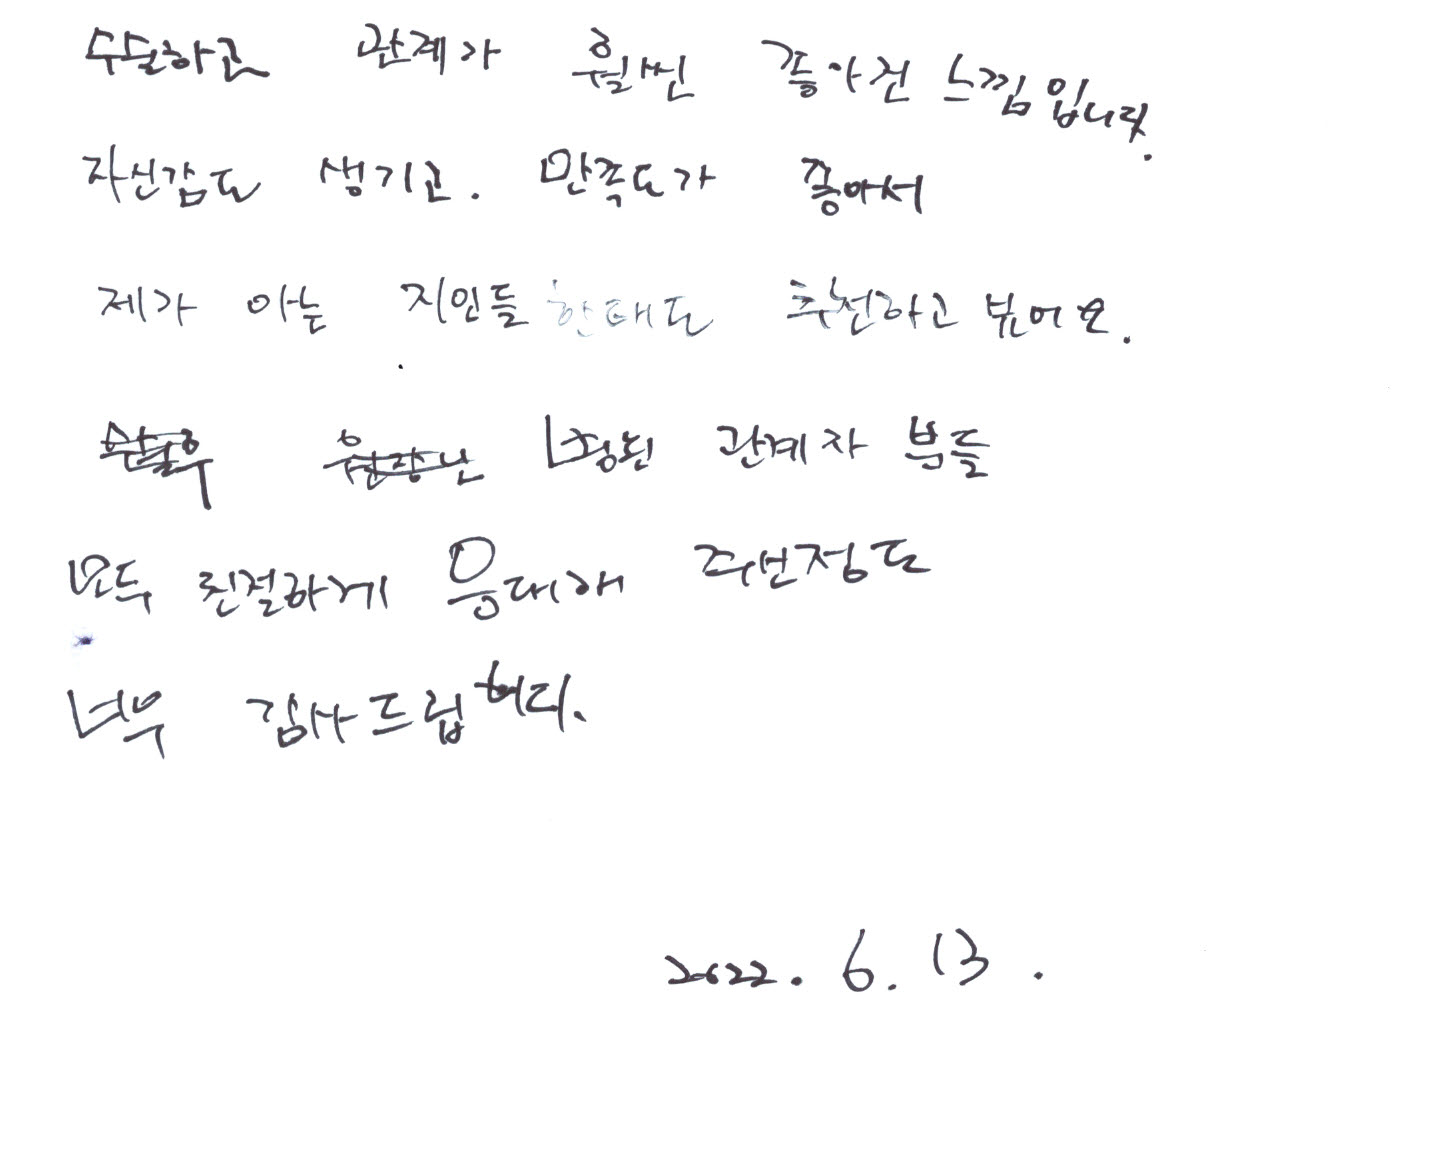 수술하고 관계가 훨씬 좋아진 느낌입니다.
자신감도 생기고. 만족도가 좋아서
제가 아는 지인들 한태도 추천하고 싶어요.
관계자 분들
모두 친절하게 응대해 주선정도
너무 감사드립니다.
2022. 6. 13.